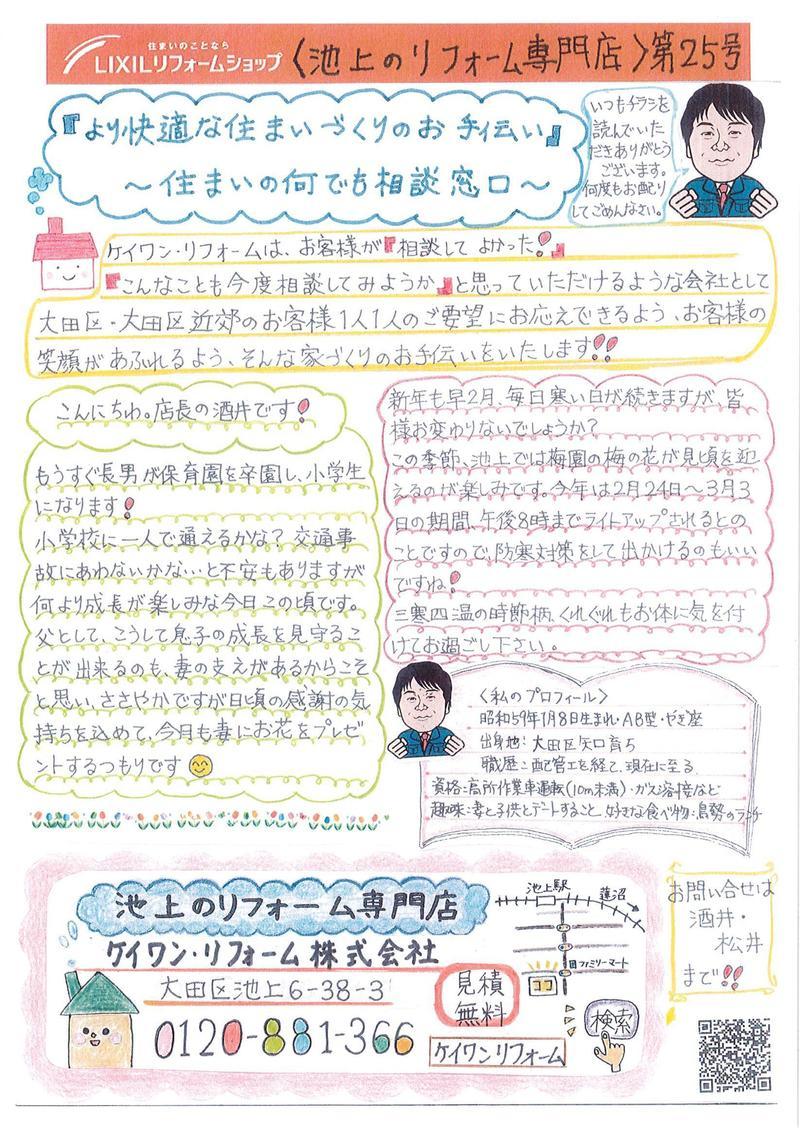 住まいのことなら
LIXILリフォームショップ
〈池上のリフォーム専門店〉第25号
『より快適な住まいづくりのお手伝い』
～住まいの何でも相談窓口～
いつもチラシを
読んでいた
だきありがとう
ございます。
何度もお配り
してごめんなさい。
ケイワン・リフォームは、お客様が『相談してよかった！』
『こんなことも今度相談してみようか』と思っていただけるような会社として
大田区・大田区近郊のお客様1人1人のご要望にお応えできるよう、お客様の
笑顔があふれるよう、そんな家づくりのお手伝いをいたします！！
こんにちわ。店長の酒井です！
もうすぐ長男が保育園を卒園し、小学生
になります！
小学校に一人で通えるかな？交通事
故にあわないかな…と不安もありますが
何より成長が楽しみな今日この頃です。
父として、こうして息子の成長を見守るこ
とが出来るのも、妻の支えがあるからこそ
と思い、ささやかですが日頃の感謝の気
持ちを込めて、今月も妻にお花をプレゼ
ントするつもりです
新年も早2月、毎日寒い日が続きますが、皆
様お変わりないでしょうか？
この季節、池上では梅園の梅の花が見頃を迎
えるのが楽しみです。今年は2月24日～3月3
日の期間、午後8時までライトアップされるとの
ことですので、防寒対策をして出かけるのもいい
ですね！
三寒四温の時節柄、くれぐれもお体に気を付
けてお過ごし下さい。
〈私のプロフィール〉
昭和59年1月8日生まれ・AB型・やぎ座
出身地：大田区矢口育ち
職歴：配管工を経て、現在に至る
資格：高所作業車運転(10m未満)・ガス溶接など
趣味：妻と子供とデートすること 好きな食べ物：鳥勢のランチ
池上のリフォーム専門店
ケイワン・リフォーム株式会社
大田区池上6-38-3
0120-881-366
見積
無料
ケイワンリフォーム
検索
池上駅
蓮沼
ファミリーマート
ココ
お問い合せは
酒井・
松井
まで！！